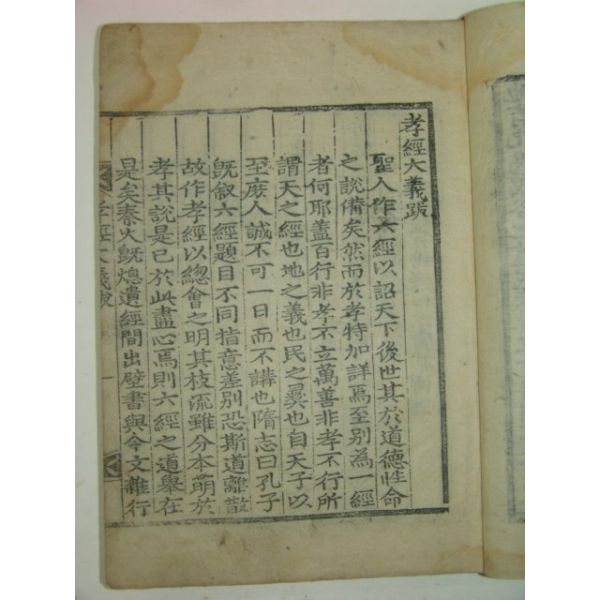 孝經大義跋
聖人作六經以詔天下後世其於道德性命
之說備矣然而於孝特加詳焉至别為一經
者何耶蓋百行非孝不立萬善非孝不行所
謂天之經也地之義也民之彛也自天子以
至庶人誠不可一日而不講也隋志曰孔子
旣叙六經題目不同指意差别恐斯道離散
故作孝經以總會之明其枝流雖分本萌於
孝其說是已於此盡心焉則六經之道舉在
是矣秦火旣熄遺經間出壁書與今文雜行
孝經大義跋
一